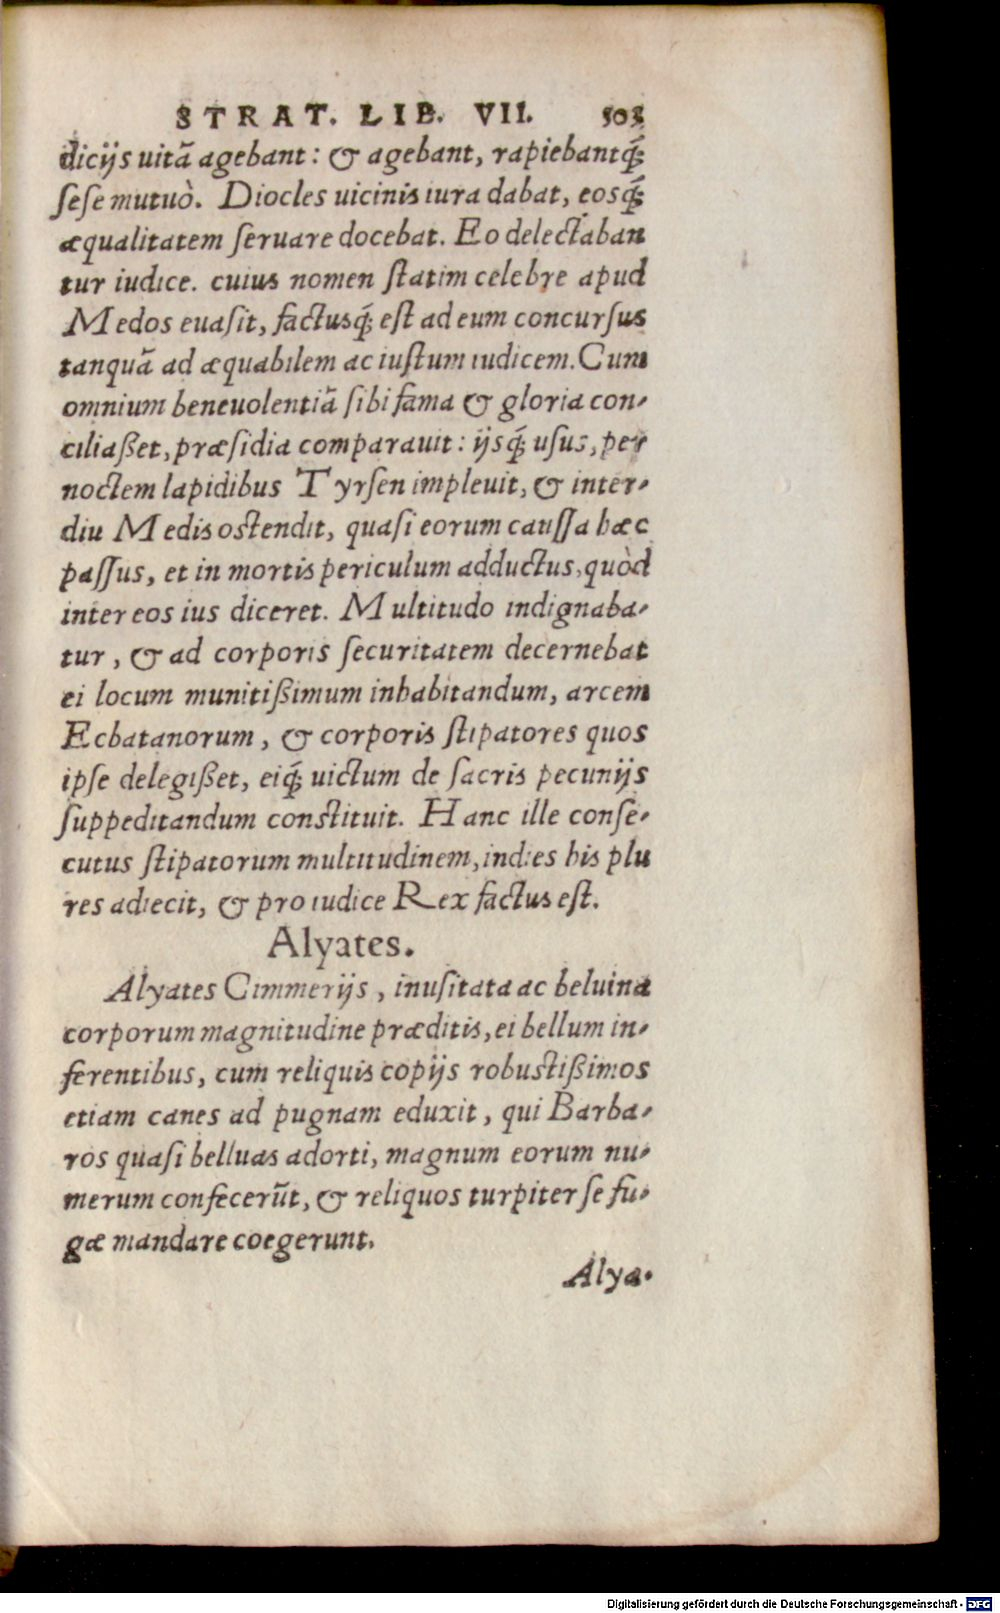 STRAT. LIB. VII. 503
dicijs uitã agebant: & agebant, rapiebantq́;
ſeſe mutuò. Diocles uicinis iura dabat, eosq́;
æqualitatem ſeruare docebat. Eo delectaban
tur iudice. cuius nomen ſtatim celebre apud
Medos euaſit, factusq́; eſt ad eum concurſus
tanquã ad æquabilem ac iuſtum iudicem. Cum
omnium beneuolentiã ſibi fama & gloria con-
ciliaßet, præſidia comparauit: ijsq́; uſus, per
noctem lapidibus Tyrſen impleuit, & inter-
diu Medis oſtendit, quaſi eorum cauſſa hæc
paſſus, et in mortis periculum adductus, quòd
inter eos ius diceret. Multitudo indignaba-
tur, & ad corporis ſecuritatem decernebat
ei locum munitißimum inhabitandum, arcem
Ecbatanorum, & corporis ſtipatores quos
ipſe delegißet, eiq́; uictum de ſacris pecunijs
ſuppeditandum conſtituit. Hanc ille conſe-
cutus ſtipatorum multitudinem, indies his plu
res adiecit, & pro iudice Rex factus eſt.
Alyates.
Alyates Cimmerijs, inuſitata ac beluina
corporum magnitudine præditis, ei bellum in-
ferentibus, cum reliquis copijs robuſtißimos
etiam canes ad pugnam eduxit, qui Barba-
ros quaſi belluas adorti, magnum eorum nu-
merum confecerũt, & reliquos turpiter ſe fu-
gæ mandare coegerunt.
Alya-
Digitalisierung gefördert durch die Deutsche Forschungsgemeinschaft - DFG